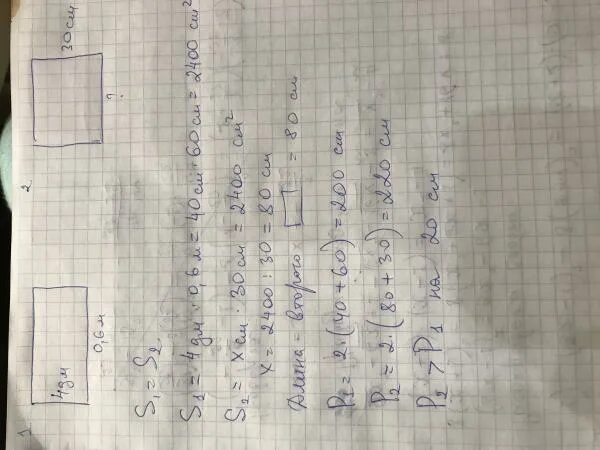 1
2
4дм
0,6м
30 см
?
S₁ = S₂
S₁ = 4дм · 0,6 м = 40см · 60 см = 2400 см²
S₂ = x см · 30 см = 2400 см²
x = 2400 : 30 = 80 см
Длина второго ▭ = 80 см
P₁ = 2·(40 + 60) = 200 см
P₂ = 2·(80 + 30) = 220 см
P₂ > P₁ на 20 см